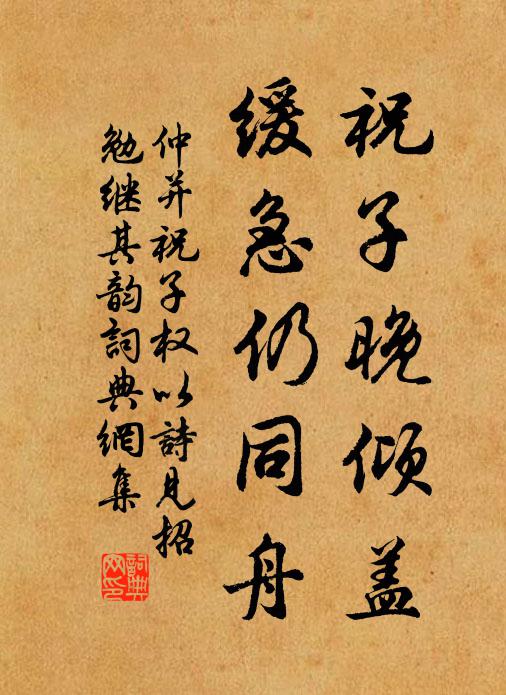 祝子晚倾盖
缓急仍同舟
仲并祝子权以詩见招
勉继其韵詞典網集
詞典网印